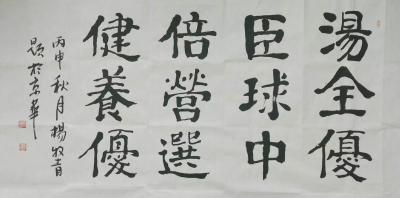 湯全優
臣球中
倍營選
健養優
丙申秋月楊牧青
題於京華